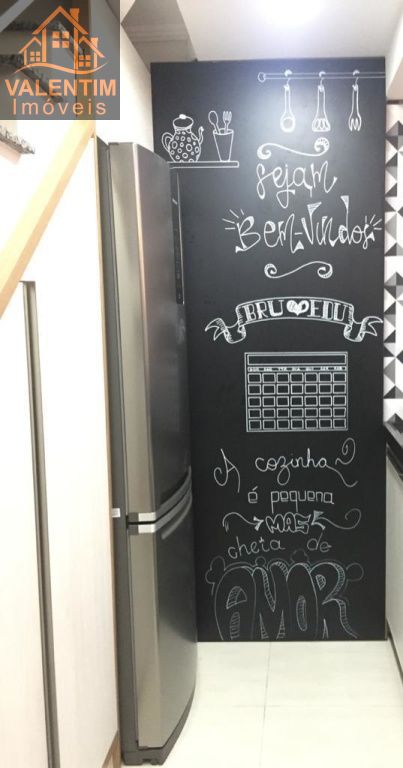 VALENTIM
Imóveis
sejam
Bem-Vindos
BRU EDU
A cozinha
é pequena
MAS
cheia de
AMOR